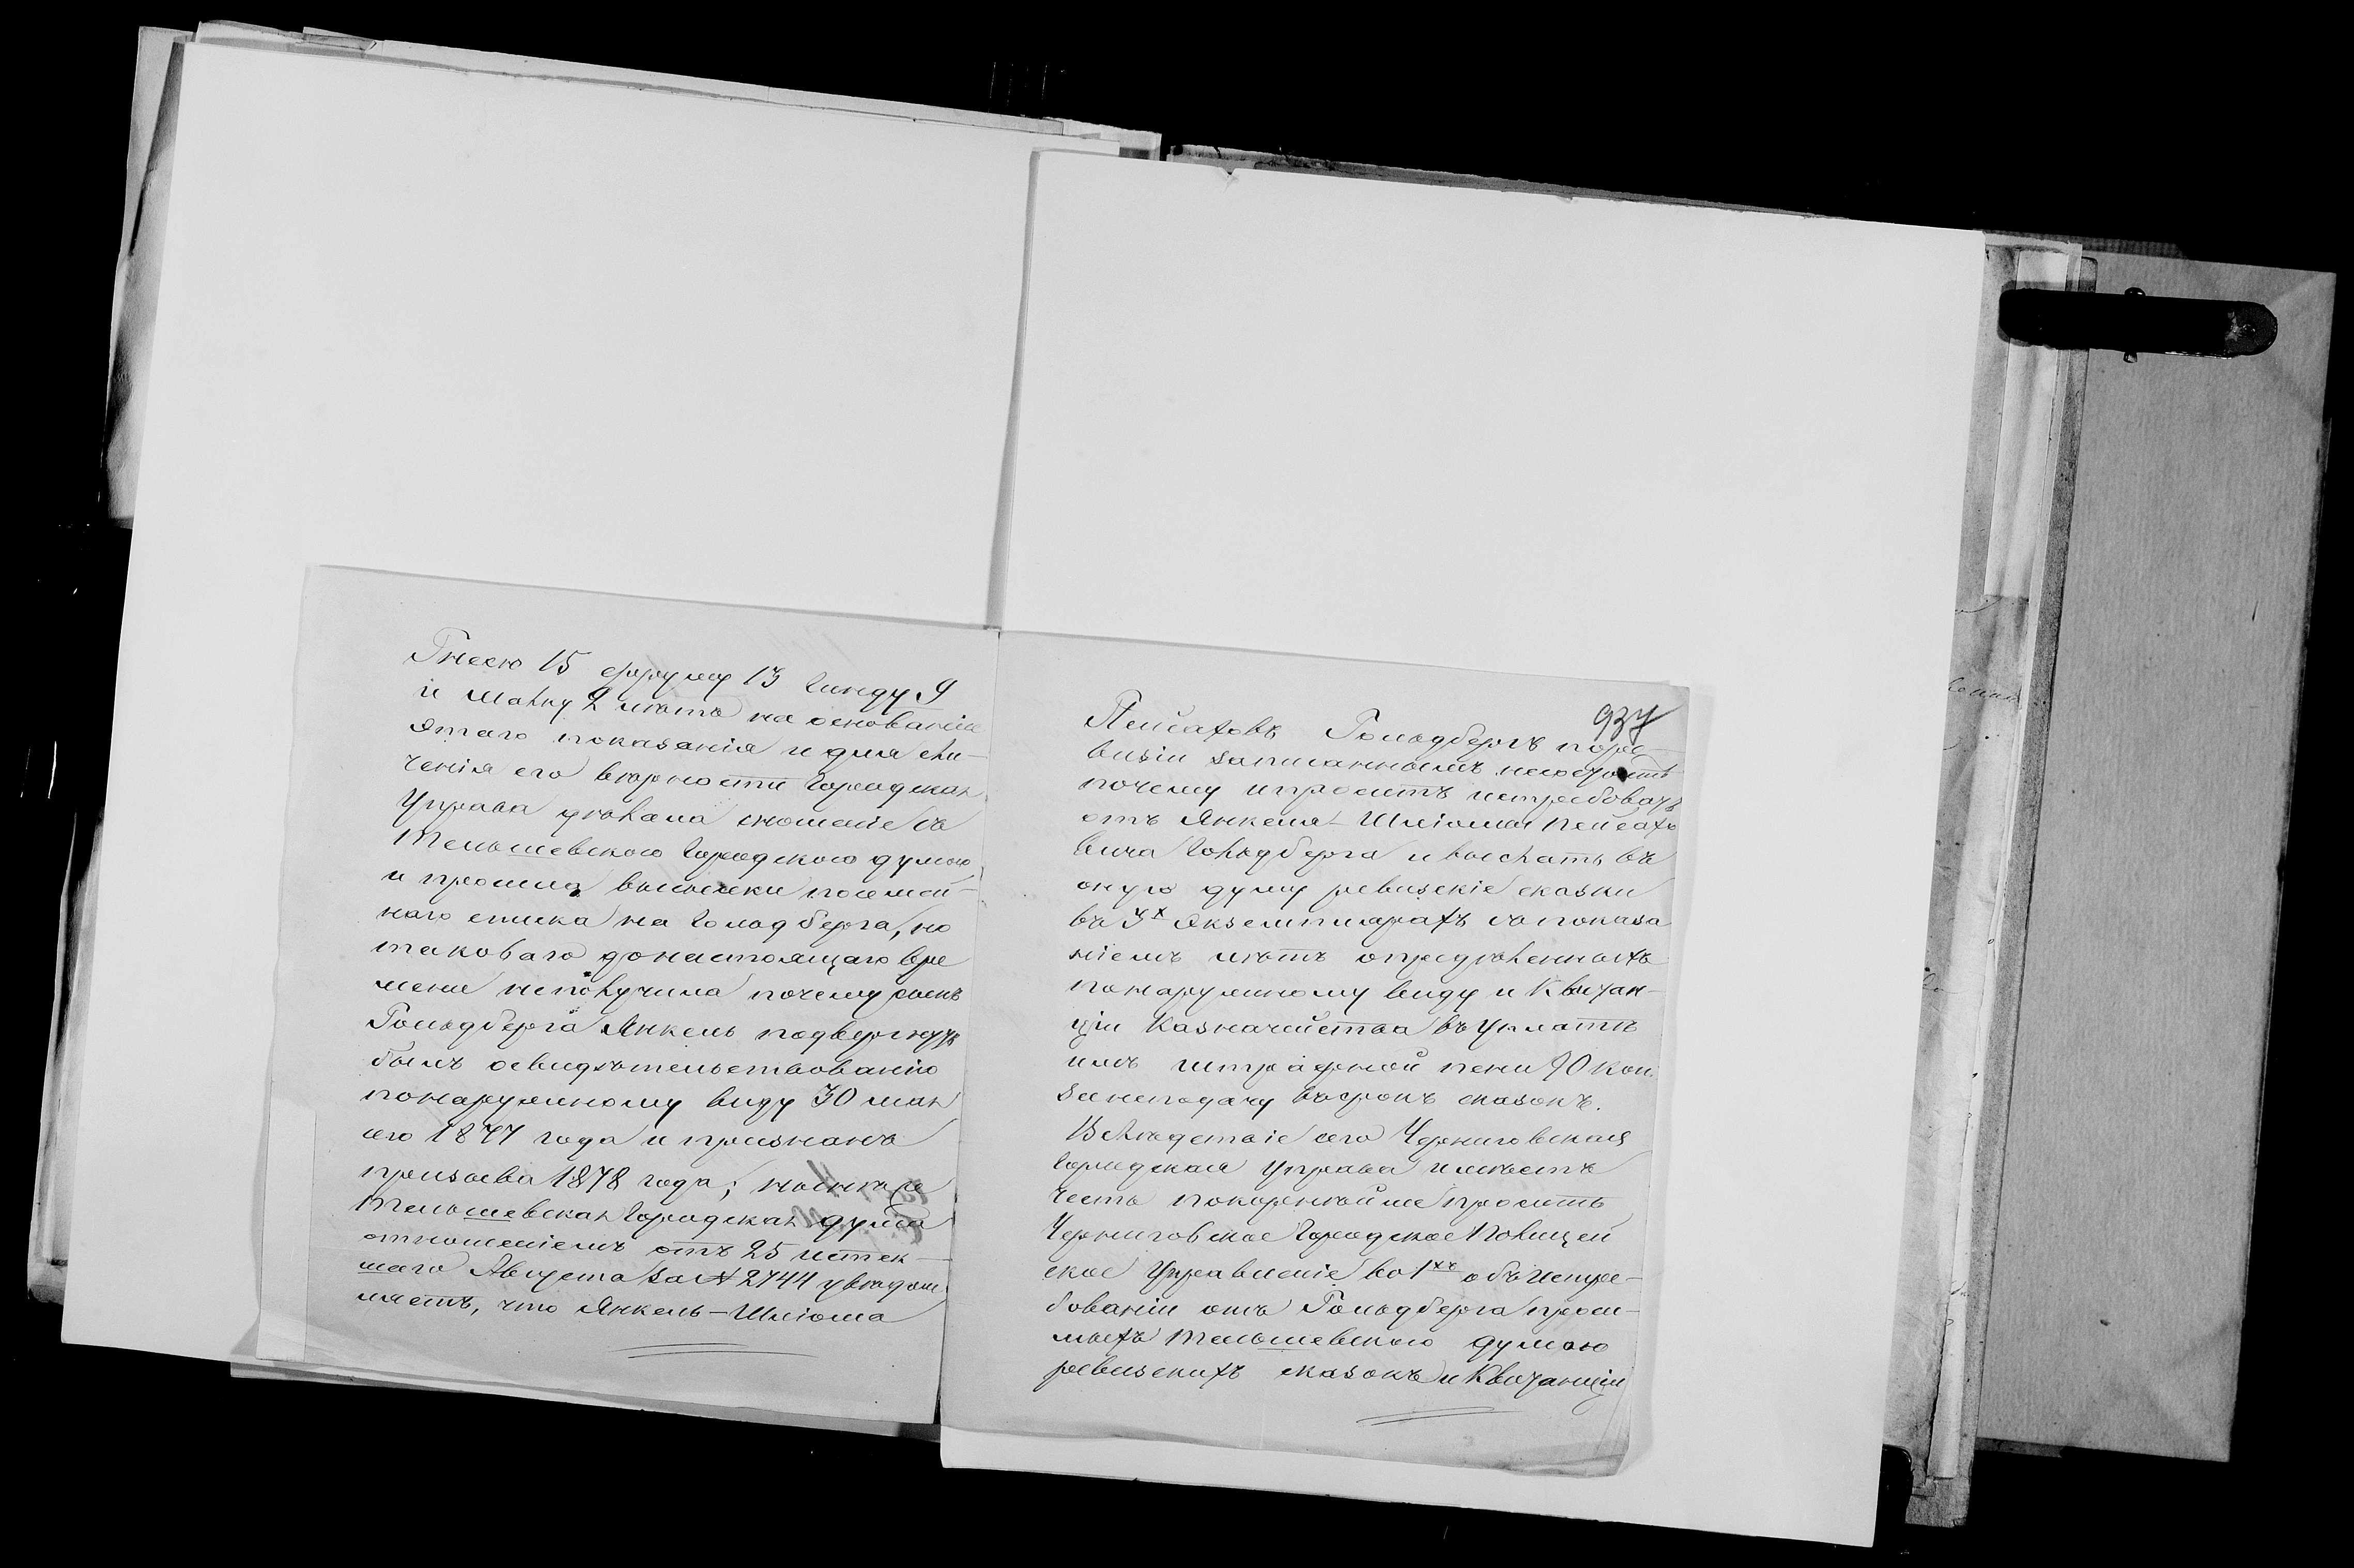 Гнесю 15 Фруму 13 Гинду 9
и Малку 2 лѣтъ на основаніи
этаго показанія и для сли-
ченія его вѣрности Городская
Управа дѣлала сношеніе съ
Тельшевскою Городскою думою
и просила высылки посемей-
наго списка на Гольдберга, но
таковаго до настоящаго вре
мени не получила почему сынъ
Гольдберга Янкель подвергнутъ
былъ освидѣтельствованію
по наружному виду 30 мая
сего 1877 года и признанъ
призыва 1878 года; нынѣ же
Тельшевская Городская дума
отношеніемъ отъ 25 истек-
шаго Августа за № 2744 увѣдом
ляетъ, что Янкель-Шліома
937
Пейсаховъ Гольдбергъ по ре-
визіи записаннымъ не состоитъ
почему и проситъ истребовать
отъ Янкеля-Шліомы Пейсахо
вича Гольдберга и выслать въ
оную думу ревизскіе сказки
въ 3х экземплярахъ съ показа
ніемъ лѣтъ опредѣленныхъ
по наружному виду и Квитан-
ціи Казначейства въ уплатѣ
имъ штрафной пени 90 коп.
за неподачу въ срокъ сказокъ.
Вслѣдствіе сего Черниговская
Городская Управа имѣетъ
честь покорнѣйше просить
Черниговское Городское Полицей
ское Управленіе во 1хъ объ истре-
бованіи отъ Гольдберга проси-
мыхъ Тельшевскою думою
ревизскихъ сказокъ и Квитанціи